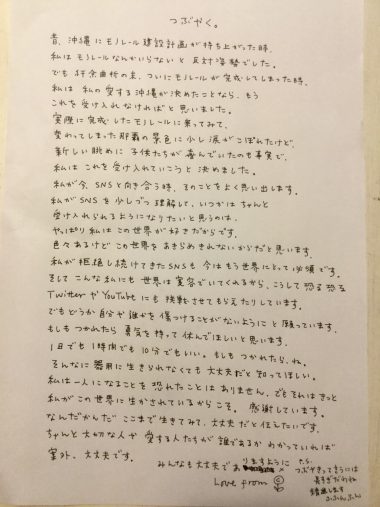 つぶやく。
昔、沖縄にモノレール建設計画が持ち上がした時、
私はモノレールなんかいらないと反対姿勢でした。
でも紆余曲折の末、ついにモノレールが完成してしまった時、
私は 私の愛する沖縄が決めたことなら、もう
これを受け入れなければと思いました。
実際に完成したモノレールに乗ってみて、
変わってしまった那覇の景色に少し涙がこぼれたけど、
新しい眺めに子供たちが喜んでいたのも事実で、
私は これを受け入れていこうと 決めました。
私が今、SNSと向き合う時、そのことをよく思い出します。
私がSNSを少しづつ理解して、いつかはちゃんと
受け入れられるようになりたいと思うのは、
やっぱり私はこの世界が好きだからです。
色々あるけどこの世界をあきらめきれないからだと思います。
私が拒絶し続けてきたSNSも今はもう世界にとって必須です。
そしてこんな私にも世界は寛容でいてくれるから、こうして恐る恐る
TwitterやYouTubeにも挑戦させてもらえたりしています。
でもどうか自分や誰かを傷つけることがないようにと願っています。
もしもつかれたら勇気を持って休んでほしいと思います。
1日でも1時間でも10分でもいい。もしもつかれたら、ね。
そんなに器用に生きられなくても大丈夫だと知ってほしい。
私は一人になることを恐れたことはありません。でもそれはきっと
私がこの世界に生かされているからこそ。感謝しています。
なんだかんだここまで生きてみて、大丈夫だと伝えたいです。
ちゃんと大切な人や愛する人たちが誰であるかわかっていれば
案外、大丈夫です。
みんなも大丈夫であ りますように
Love from
P.S.
つぶやきってきうには
長すぎだわね
精進します
ふふんふん